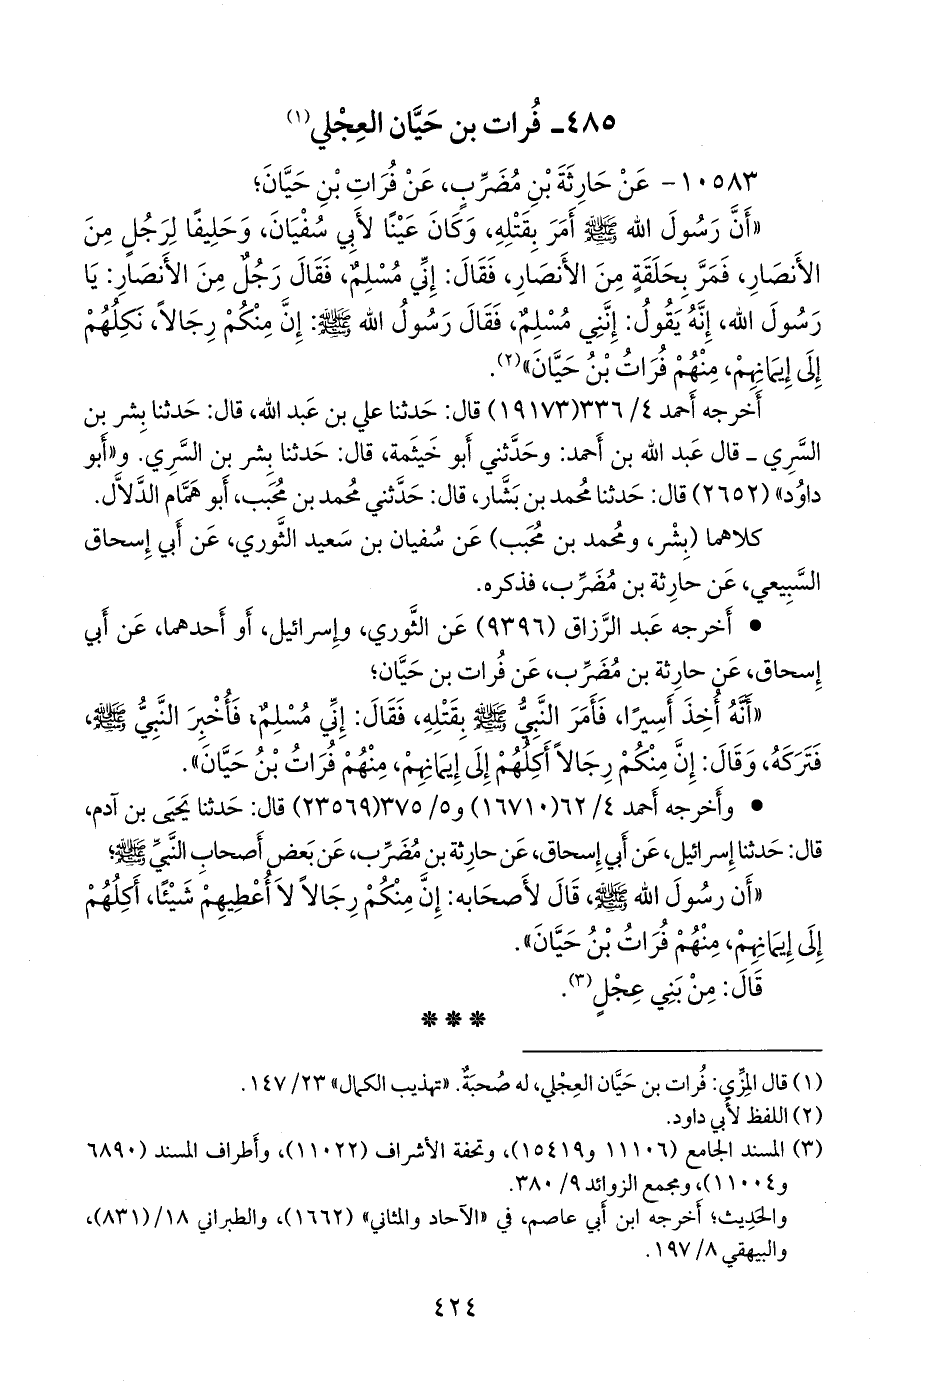 ٤٨٥ـ فُرات بن حَيَّان العِجْلي(١)
١٠٥٨٣- عَنْ حَارِثَةَ بْنِ مُضَرِّبٍ، عَنْ فُرَاتِ بْنِ حَيَّانَ؛
«أَنَّ رَسُولَ الله ﷺ أَمَرَ بِقَتْلِهِ، وَكَانَ عَيْنًا لأَبِي سُفْيَانَ، وَحَلِيفًا لِرَجُلٍ مِنَ
الأَنصَارِ، فَمَرَّ بِحَلَقَةٍ مِنَ الأَنصَارِ، فَقَالَ: إِنِّي مُسْلِمٌ، فَقَالَ رَجُلٌ مِنَ الأَنصَارِ: يَا
رَسُولَ الله، إِنَّهُ يَقُولُ: إِنَّنِي مُسْلِمٌ، فَقَالَ رَسُولُ الله ﷺ: إِنَّ مِنْكُمْ رِجَالاً، نَكِلُهُمْ
إِلَى إِيمَانِهِمْ، مِنْهُمْ فُرَاتُ بْنُ حَيَّانَ»(٢).
أَخرجه أَحمد ٤/ ٣٣٦(١٩١٧٣) قال: حَدثنا علي بن عَبد الله، قال: حَدثنا بِشر بن
السَّرِي ـ قال عَبد الله بن أَحمد: وحَدَّثني أَبو خَيثمة، قال: حَدثنا بِشر بن السَّرِي. و«أَبو
داوُد» (٢٦٥٢) قال: حَدثنا محمد بن بَشَّار، قال: حَدَّثني محمد بن مُحَبَب، أَبو هَمَّام الدَّلاَّل.
كلاهما (بِشْر، ومُحمد بن مُحَبَب) عَن سُفيان بن سَعيد الثَّوري، عَن أَبي إِسحاق
السَّبِيعي، عَن حارِثة بن مُضَرِّب، فذكره.
• أَخرجه عَبد الرَّزاق (٩٣٩٦) عَن الثَّوري، وإِسرائيل، أَو أَحدهما، عَن أَبي
إِسحاق، عَن حارِثة بن مُضَرِّب، عَن فُرات بن حَيَّان؛
«أَنَّهُ أُخِذَ أَسِيرًا، فَأَمَرَ النَّبِيُّ ﷺ بِقَتْلِهِ، فَقَالَ: إِنِّي مُسْلِمٌ، فَأُخْبِرَ النَّبِيُّ ﷺ،
فَتَرَكَهُ، وَقَالَ: إِنَّ مِنْكُمْ رِجَالاً أَكِلُهُمْ إِلَى إِيمَانِهِمْ، مِنْهُمْ فُرَاتُ بْنُ حَيَّانَ».
• وأَخرجه أَحمد ٤/ ٦٢(١٦٧١٠) و٥/ ٣٧٥(٢٣٥٦٩) قال: حَدثنا يَحيَى بن آدم،
قال: حَدثنا إِسرائيل، عَن أَبي إِسحاق، عَن حارِثة بن مُضَرِّب، عَن بَعض أَصحابِ النَّبيِّ ﷺ؛
«أَن رسُولَ الله ﷺ، قَالَ لأَصحَابه: إِنَّ مِنْكُمْ رِجَالاً لاَ أُعْطِيهِمْ شَيْئًا، أَكِلُهُمْ
إِلَى إِيمَانِهِمْ، مِنْهُمْ فُرَاتُ بْنُ حَيَّانَ».
قَالَ: مِنْ بَنِي عِجْلٍ(٣).
***
(١) قال المِزِّي: فُرات بن حَيَّان العِجْلي، له صُحبَةٌ. «تهذيب الكمال» ٢٣/ ١٤٧.
(٢) اللفظ لأَبي داود.
(٣) المسند الجامع (١١١٠٦ و١٥٤١٩)، وتحفة الأشراف (١١٠٢٢)، وأَطراف المسند (٦٨٩٠
و١١٠٠٤)، ومجمع الزوائد ٩/ ٣٨٠.
والحَدِيث؛ أَخرجه ابن أَبي عاصم، في «الآحاد والمثاني» (١٦٦٢)، والطبراني ١٨/(٨٣١)،
والبيهقي ٨/ ١٩٧.
٤٢٤